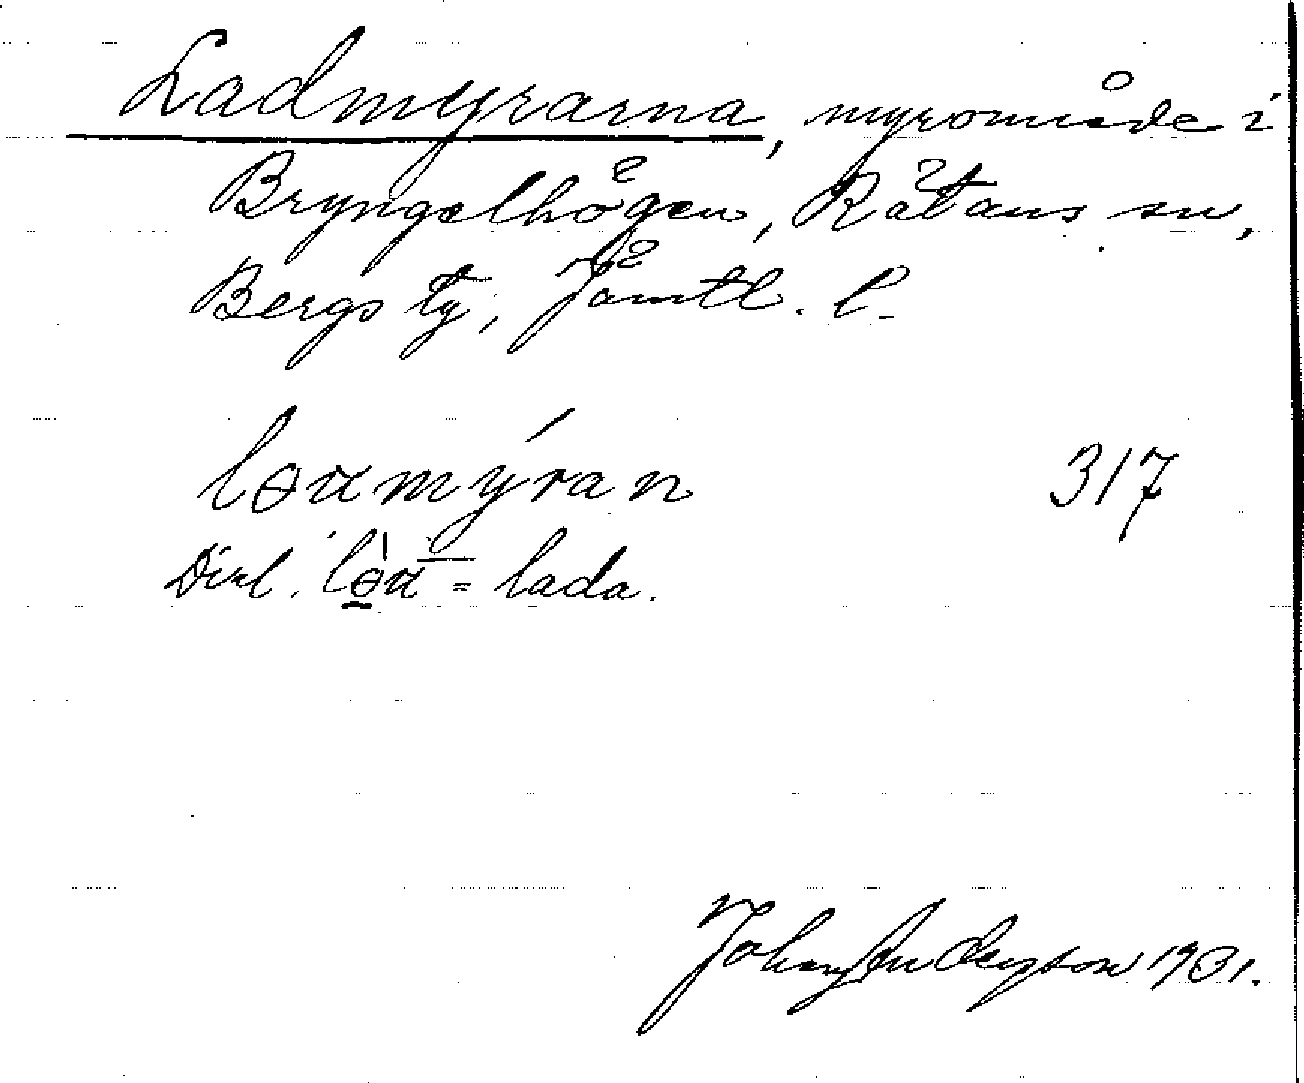 Ladmyrarna, myrområde i
Bryngelhögen, Rätans sn,
Bergs tg, Jämtl. l.
lɵɑmýran 317
Dial. lɵ̀ɑ = lada.
Johan Anderson 1931.